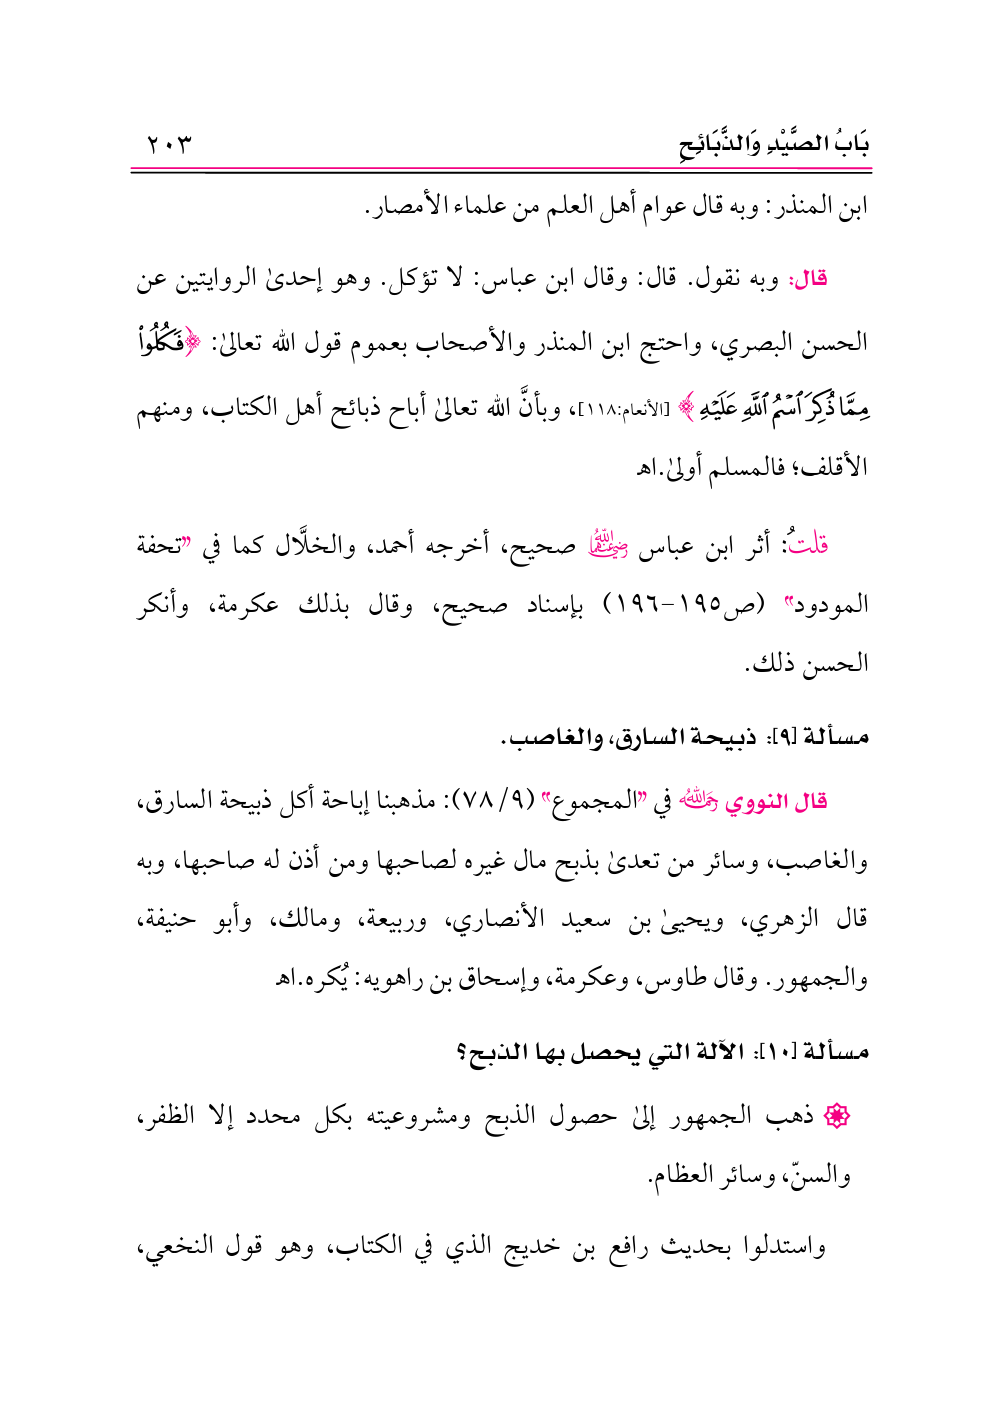 بَابُ الصَّيْدِ وَالذَّبَائِحِ ٢٠٣
ابن المنذر: وبه قال عوام أهل العلم من علماء الأمصار.
قال: وبه نقول. قال: وقال ابن عباس: لا تؤكل. وهو إحدىٰ الروايتين عن
الحسن البصري، واحتج ابن المنذر والأصحاب بعموم قول الله تعالىٰ: ﴿فَكُلُوا۟
مِمَّا ذُكِرَ ٱسْمُ ٱللَّهِ عَلَيْهِ﴾ [الأنعام:١١٨]، وبأنَّ الله تعالىٰ أباح ذبائح أهل الكتاب، ومنهم
الأقلف؛ فالمسلم أولىٰ.اهـ
قلتُ: أثر ابن عباس رضي الله عنهما صحيح، أخرجه أحمد، والخلَّال كما في "تحفة
المودود" (ص١٩٥-١٩٦) بإسناد صحيح، وقال بذلك عكرمة، وأنكر
الحسن ذلك.
مسألة [٩]: ذبيحة السارق، والغاصب.
قال النووي رحمه الله في "المجموع" (٩/ ٧٨): مذهبنا إباحة أكل ذبيحة السارق،
والغاصب، وسائر من تعدىٰ بذبح مال غيره لصاحبها ومن أذن له صاحبها، وبه
قال الزهري، ويحيىٰ بن سعيد الأنصاري، وربيعة، ومالك، وأبو حنيفة،
والجمهور. وقال طاوس، وعكرمة، وإسحاق بن راهويه: يُكره.اهـ
مسألة [١٠]: الآلة التي يحصل بها الذبح؟
ذهب الجمهور إلىٰ حصول الذبح ومشروعيته بكل محدد إلا الظفر،
والسنّ، وسائر العظام.
واستدلوا بحديث رافع بن خديج الذي في الكتاب، وهو قول النخعي،